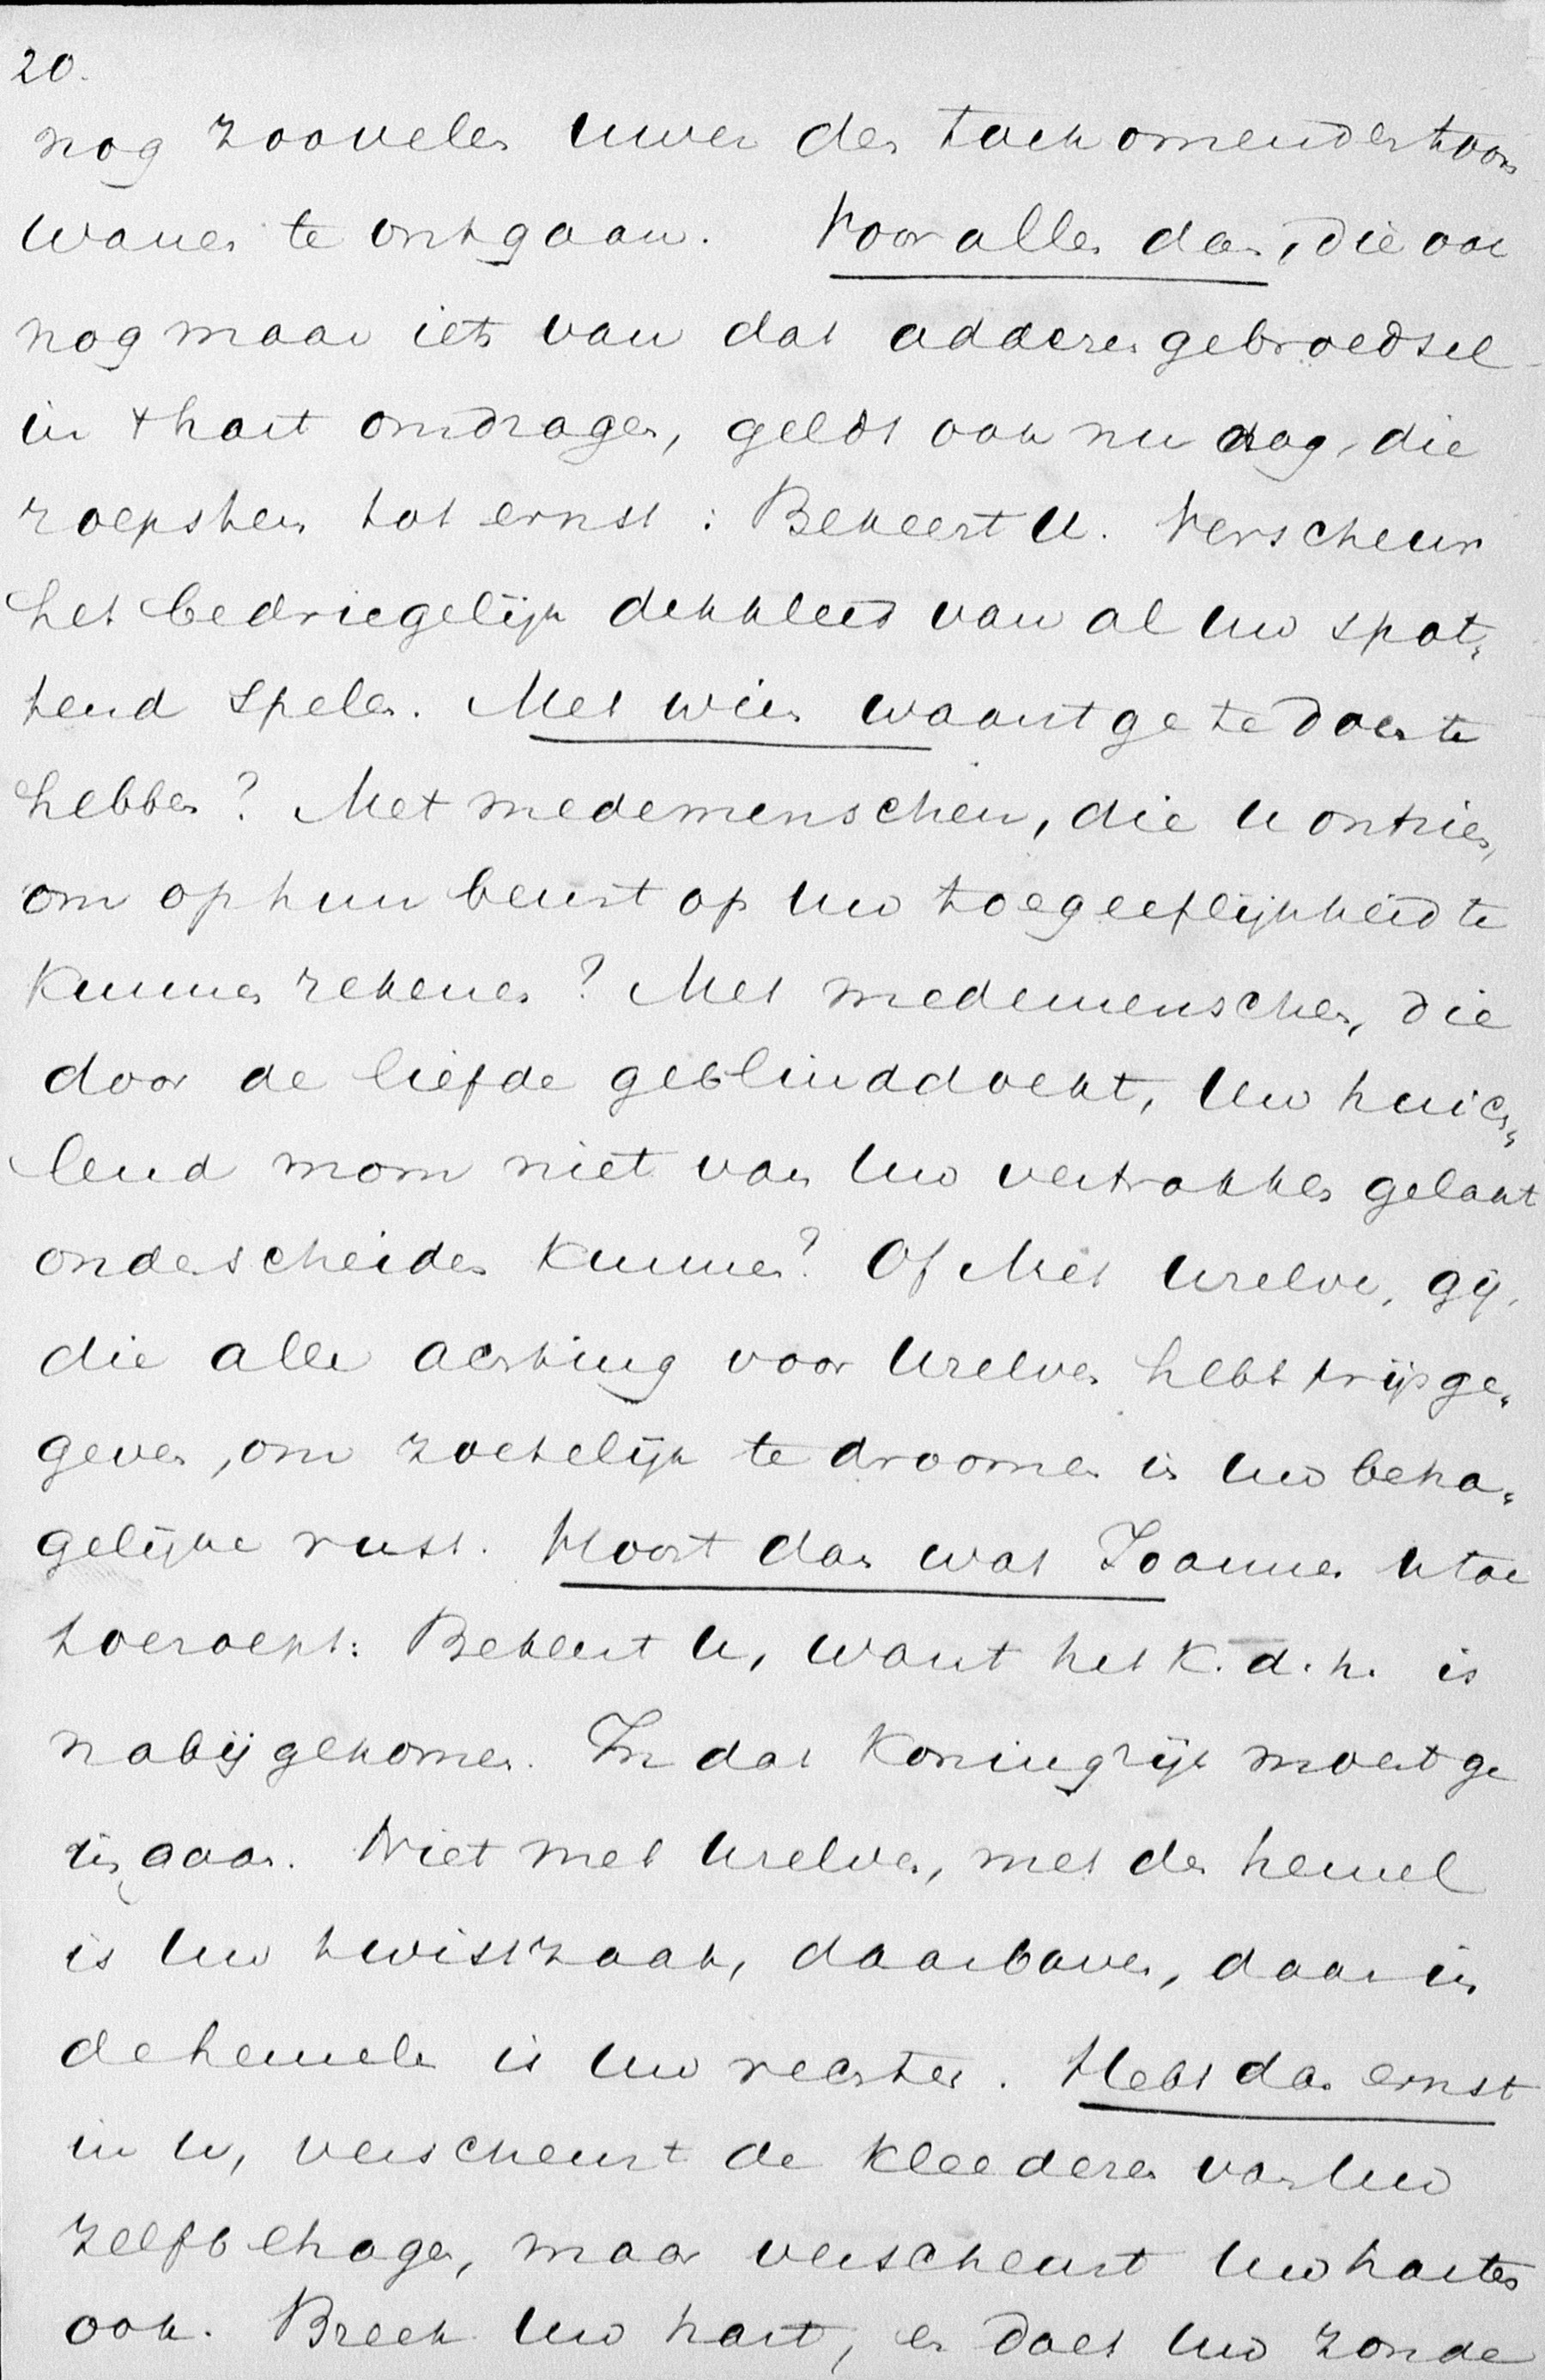 20.
nog zoovelen uwer den toekomenden toorn
wanen te ontgaan. Voor allen dan, die ook
nog maar iets van dat adderengebroedsel
in 't hart omdragen, geldt ook nu nog, die
roepstem tot ernst: Bekeert U. Verscheur
het bedriegelijk dekkleed van al uw spot„
tend spelen. Met wien waant ge te doen te
hebben? Met medemenschen, die u ontzien,
om op hun beurt op uw toegeeflijkheid te
kunnen rekenen? Met medemenschen, die
door de liefde geblinddoekt, uw huiche„
lend mom niet van uw vertrokken gelaat
onderscheiden kunnen? Of Met uzelve, gij,
die alle achting voor uzelven hebt prijsge„
geven, om zoetelijk te droomen in uw beha„
gelijke rust. Hoort dan wat Joannes u toe
toeroept: Bekeert u, want het K. d. h. is
nabij gekomen. In dat Koningrijk moet ge
ingaan. Niet met uzelven, met den hemel
is uw twistzaak, daarboven, daar in
de hemelen is uw rechter. Hebt dan ernst
in u, verscheurt de kleederen van uw
zelfbehagen, maar verscheurt uw harten
ook. Breek uw hart, en doet uw zonde